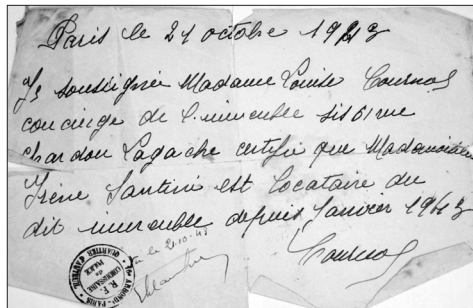 Paris le 21 octobre 1943
Je soussignée Madame Louise Cournol
concierge de l'immeuble sis 61 rue
chardon Lagache certifie que Mademoiselle
Irène Santini est locataire du
dit immeuble depuis Janvier 1943
le 21-10-43
Cournol
COMMISSAIRE
DE
POLICE
R.F.
PARIS
QUARTIER